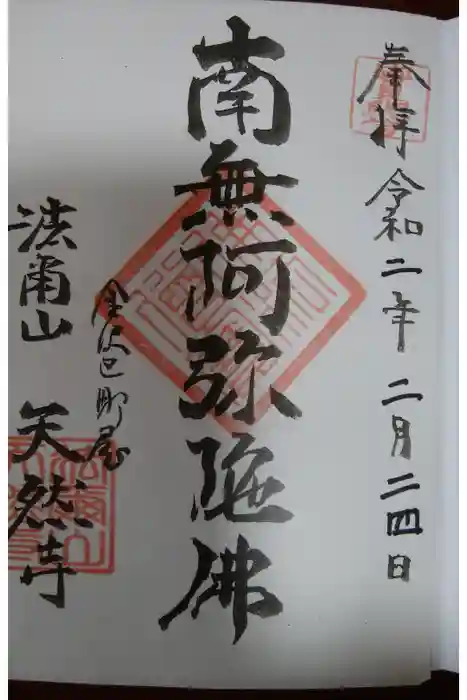 奉拝 令和二年 二月二四日
南無阿弥陀佛
金沢區町屋
法甫山 天然寺